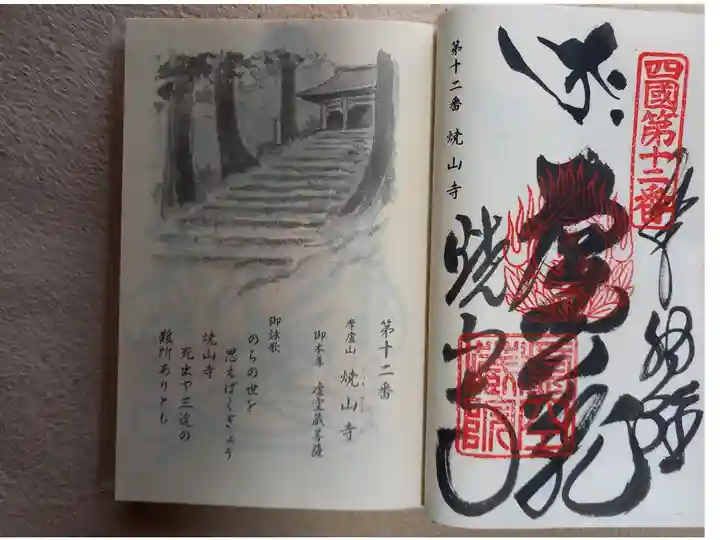 第十二番
摩盧山 焼山寺
御本尊 虚空蔵菩薩
御詠歌
のちの世を
思えばくぎょう
焼山寺
死出や三途の
難所ありとも
第十二番 焼山寺
四國第十二番
奉納經
焼山寺